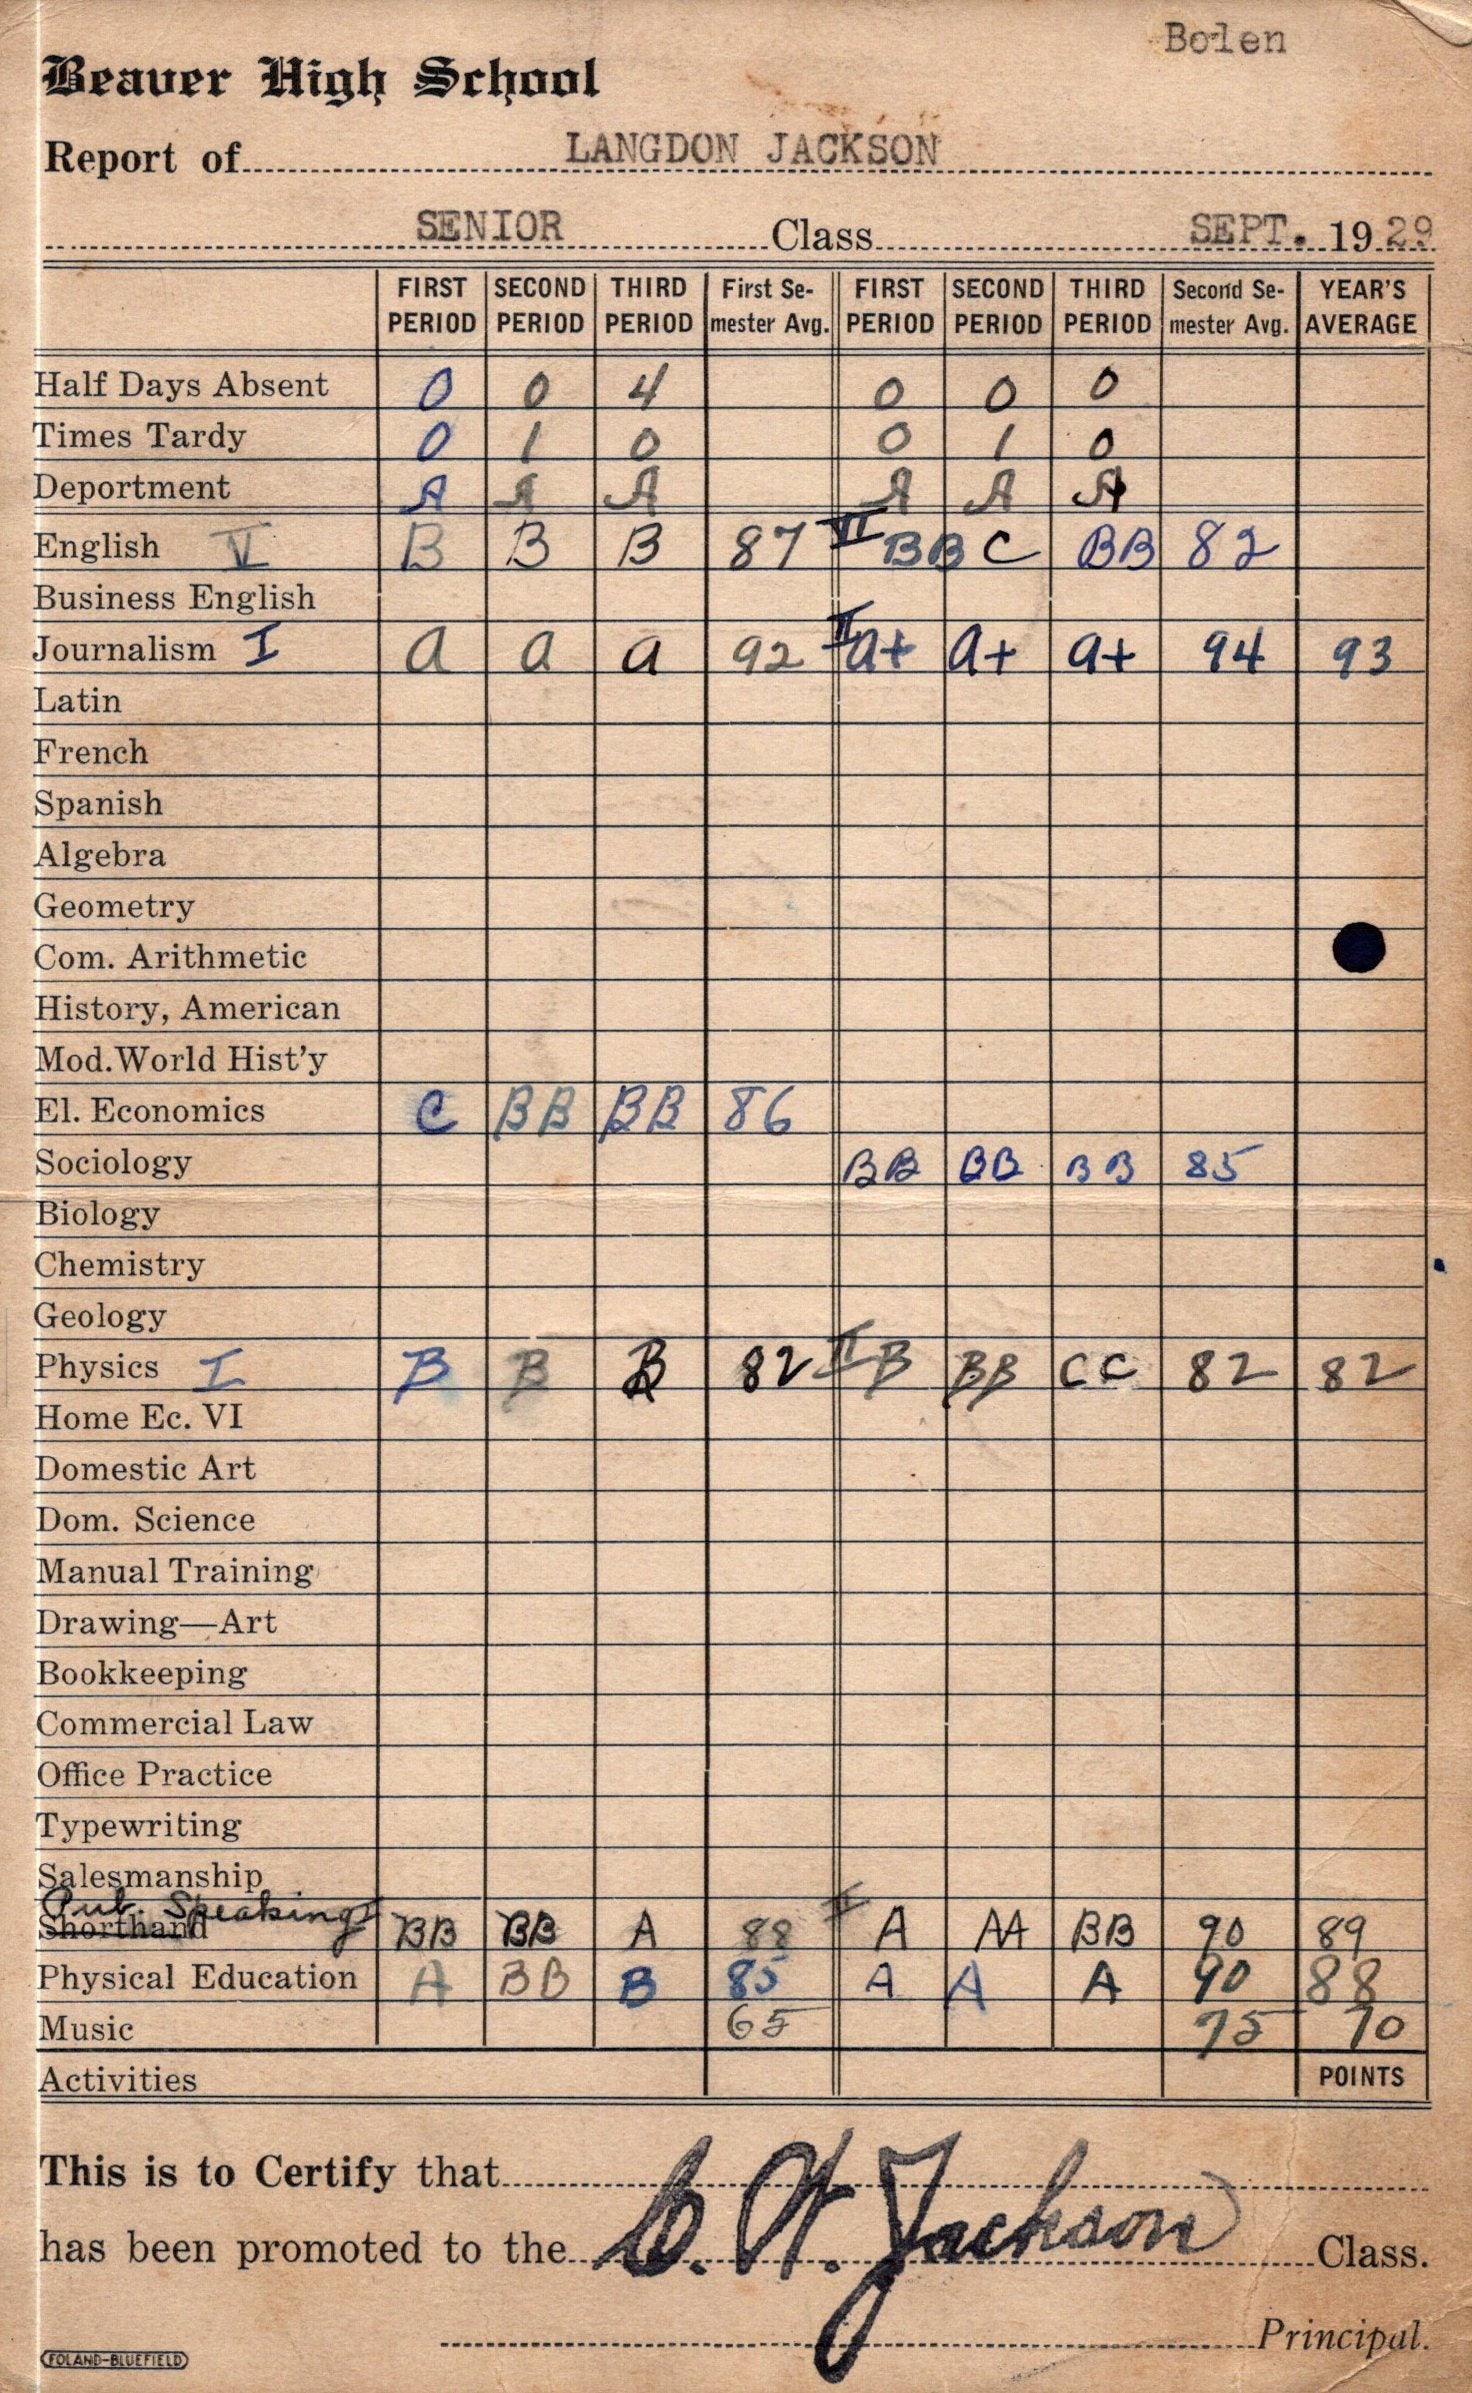 Bolen
Beaver High School
Report of LANGDON JACKSON
SENIOR Class SEPT. 1929
FIRST PERIOD SECOND PERIOD THIRD PERIOD First Semester Avg. FIRST PERIOD SECOND PERIOD THIRD PERIOD Second Semester Avg. YEAR'S AVERAGE
Half Days Absent 0 0 4 0 0 0
Times Tardy 0 1 0 0 1 0
Deportment A A A A A A
English V B B B 87 VI BB C BB 82
Business English
Journalism I a a a 92 II a+ a+ a+ 94 93
Latin
French
Spanish
Algebra
Geometry
Com. Arithmetic
History, American
Mod. World Hist'y
El. Economics C BB BB 86
Sociology BB BB BB 85
Biology
Chemistry
Geology
Physics I B B B 82 II B BB CC 82 82
Home Ec. VI
Domestic Art
Dom. Science
Manual Training
Drawing—Art
Bookkeeping
Commercial Law
Office Practice
Typewriting
Salesmanship
Pub. Speaking I
Shorthand BB BB A 88 II A AA BB 90 89
Physical Education A BB B 85 A A A 90 88
Music 65 75 70
Activities POINTS
This is to Certify that
has been promoted to the C. W. Jackson Class.
Principal.
FOLAND-BLUEFIELD